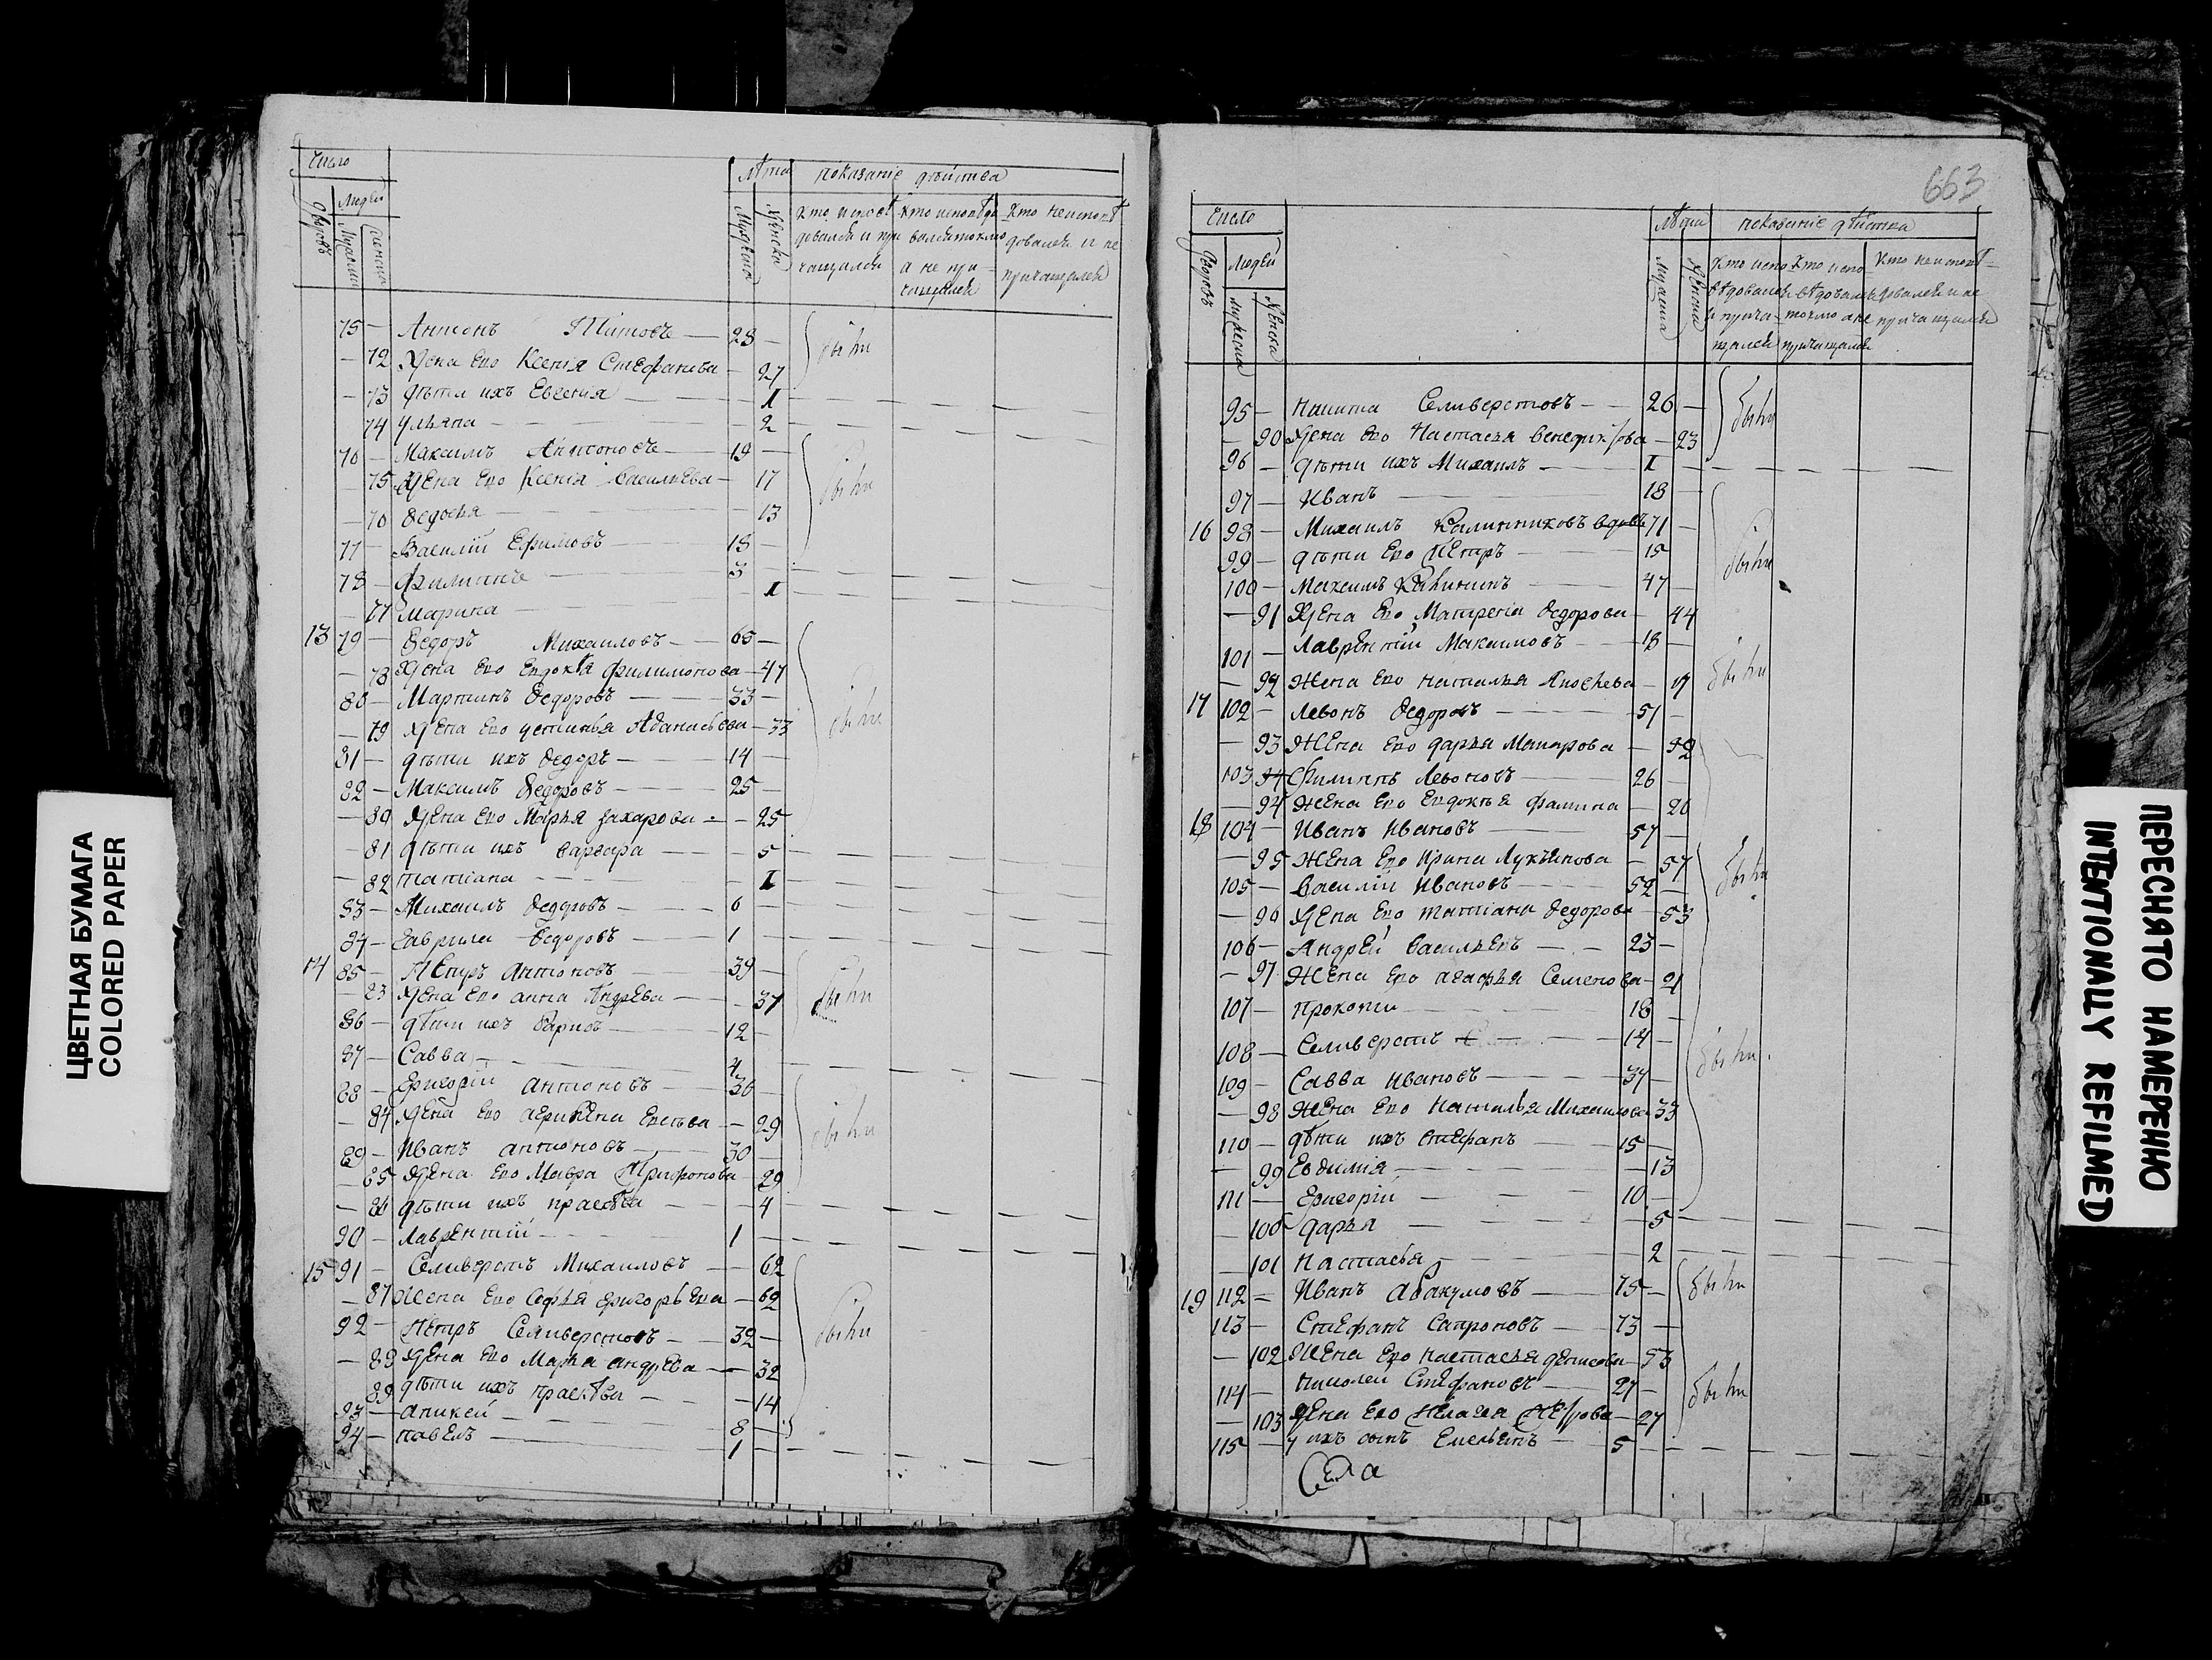 ЦВЕТНАЯ БУМАГА
COLORED PAPER
Число
Лѣта
показаніе дѣйства
Дворовъ
Людей
Мужеска
Женска
кто исповѣ
довался и при
чащался
кто исповѣдо
вался токмо
а не при-
чащался
кто неисповѣ
довался и не
причащался
75 — Антонъ Титовъ — 28 —
— 72 Жена Его Ксенія Стефанова — 27
были
— 73 дѣти ихъ Евгенія — 1
74 Ульяна — 2
76 — Максимъ Антоновъ — 19 —
— 75 Жена Его Ксенія Васильева — 17
были
— 76 Ѳедосья — 13
77 — Василій Ефимовъ — 18 —
78 — Филиппъ — 3
— 77 Марина — 1
13 79 — Ѳедоръ Михаиловъ — 65 —
— 78 Жена Его Евдокѣя Филимонова — 47
80 — Мартинъ Ѳедоровъ — 33 —
— 79 Жена Его Устинья Аѳанасьева — 33
были
81 — дѣти ихъ Ѳедоръ — 14 —
82 — Максимъ Ѳедоровъ — 25 —
— 80 Жена Его Марья Захарова — 25
— 81 дѣти ихъ Варвара — 5
— 82 Татіана — 1
83 — Михаилъ Ѳедоровъ — 6
84 — Гаврила Ѳедоровъ — 1
14 85 — Петръ Антоновъ — 39 —
— 83 Жена Его Анна Андрева — 37
были
86 — дѣти ихъ — 12 —
87 — Савва — 4
88 — Григорій Антоновъ — 36 —
— 84 Жена Его Агрипена — 29
были
89 — Иванъ Антоновъ — 30 —
— 85 Жена Его Мавра Трифонова — 29
— 86 дѣти ихъ Прасковя — 4
90 — Лаврентій — 1
15 91 — Селиверстъ Михаиловъ — 62
— 87 Жена Его Софья Григорьева — 62
92 — Петръ Селиверстовъ — 32 —
были
— 88 Жена Его Марья Андрева — 32
89 дѣти ихъ Прасковя — 14
93 — Аникей — 8
94 — Павелъ — 1
663
Число
Лѣта
показаніе дѣйства
Дворовъ
Людей
Мужеска
Женска
Кто испо
вѣдовался
и прича
щался
Кто испо
вѣдовался
токмо а не
причащался
Кто неисповѣ
довался и не
причащался
95 — Никита Селиверстовъ — 26 —
— 90 Жена Его Настасья Венедиктова — 23
были
96 — дѣти ихъ Михаилъ — 1
97 — Иванъ — 18 —
16 98 — Михаилъ Калинниковъ вдовъ 71 —
99 — дѣти Его Петръ — 15
были
100 — Максимъ Калининъ — 47 —
— 91 Жена Его Матрена Ѳедорова — 44
101 — Лаврентій Максимовъ — 18 —
— 92 Жена Его Наталья — 19
были
17 102 — Левонъ Ѳедоровъ — 51 —
— 93 Жена Его Дарья Макарова — 52
103 Филиппъ Левоновъ — 26 —
— 94 Жена Его Евдокья Фамина — 26
18 104 — Иванъ Ивановъ — 57 —
— 95 Жена Его Ирина Лукьянова — 57
были
105 — Василій Ивановъ — 52 —
— 96 Жена Его Татіана Ѳедорова — 53
106 — Андрей Васильевъ — 23 —
— 97 Жена Его Агафья Семенова — 21
107 — Прокопи — 18 —
108 — Селиверстъ — 14 —
были
109 — Савва Ивановъ — 34 —
— 98 Жена Его Наталья Михаилова 33
110 — дѣти ихъ Стефанъ — 15 —
— 99 Евдимія — 13
111 — Григорій — 10 —
— 100 Дарья — 5
— 101 Настасья — 2
19 112 — Иванъ Абакумовъ — 75 —
были
113 — Стефанъ Сапроновъ — 73 —
— 102 Жена Его Настасья Денисова — 53
114 — Николай Стефановъ — 27 —
были
— 103 Жена Его Пелагея Петрова — 27
115 — у ихъ сынъ Емельянъ — 5
Села
ПЕРЕСНЯТО НАМЕРЕННО
INTENTIONALLY REFILMED